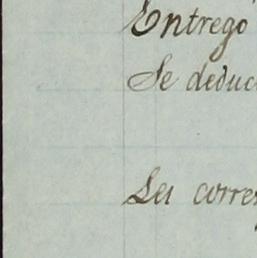 Entregó
Se deduc
Les corres